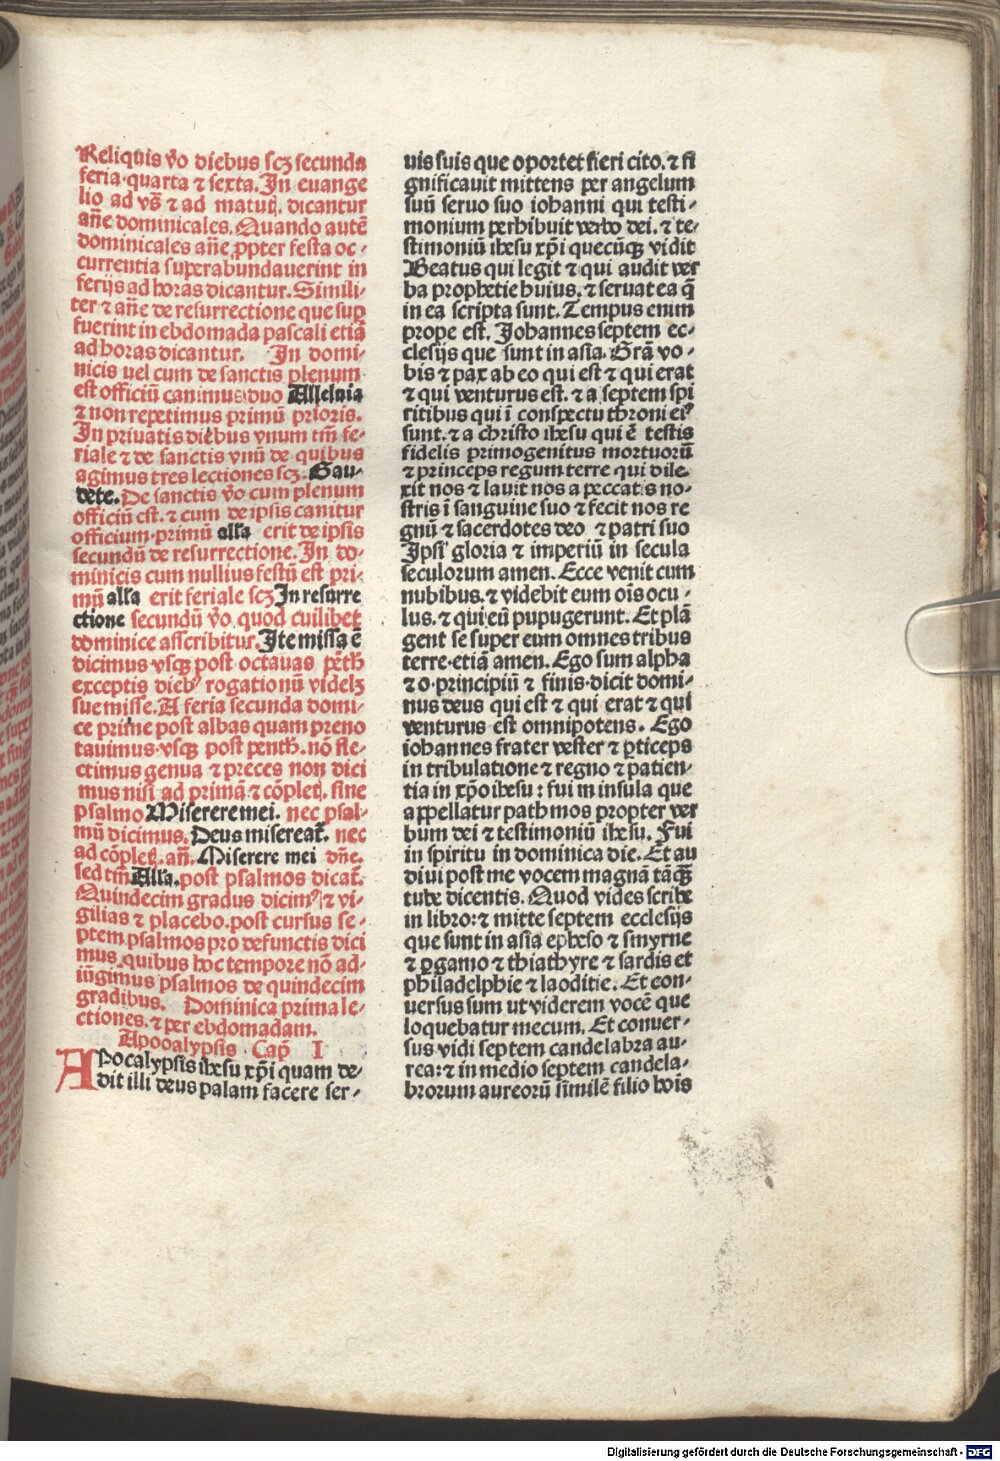 Reliquis v̄o diebus scꝫ secunda
feria·quarta ⁊ sexta. In euange
lio ad vs̄ ⁊ ad matuꝭ. dicantur
añe dominicales. Quando autē
dominicales añe ꝓpter festa oc⸗
currentia superabundauerint in
ferijs ad horas dicantur. Simili⸗
ter ⁊ añe de resurrectione que sup̱
fuerint in ebdomada pascali etiā
ad horas dicantur. In domi⸗
nicis uel cum de sanctis plenum
est officiū canimus duo Alleluia
⁊ non repetimus primū prioris.
In priuatis diebus vnum tm̄ fe⸗
riale ⁊ de sanctis vnū de quibus
agimus tres lectiones scꝫ. Gau⸗
dete. De sanctis v̄o cum plenum
officiū est. ⁊ cum de ipsis canitur
officium·primū alla erit de ipsis
secundū de resurrectione. In do⸗
minicis cum nullius festū est pri⸗
mū alla erit feriale scꝫ In resurre
ctione secundū v̄o quod cuilibet
dominice asscribitur. Ite missa ē
dicimus vsqꝫ post octauas pēth
exceptis dieb⁹ rogationū videlꝫ
sue misse. A feria secunda domi⸗
ce prime post albas quam preno
tauimus·vsqꝫ post penth. nō fle⸗
ctimus genua ⁊ preces non dici
mus nisi ad primā ⁊ cōpleꝭ. sine
psalmo Miserere mei. nec psal⸗
mū dicimus. Deus misereat᷑. nec
ad cōpleꝭ. añ. Miserere mei dn̄e.
sed tm̄ Alla. post psalmos dicat᷑.
Quindecim gradus dicim⁹ ⁊ vi⸗
gilias ⁊ placebo. post cursus se⸗
ptem psalmos pro defunctis dici
mus. quibus hoc tempore nō ad⸗
iūgimus psalmos de quindecim
gradibus. Dominica prima le⸗
ctiones. ⁊ per ebdomadam.
Apocalypsis Cap̄ I
Apocalypsis ihesu xp̄i quam de⸗
dit illi deus palam facere ser⸗
uis suis que oportet fieri cito. ⁊ si
gnificauit mittens per angelum
suū seruo suo iohanni qui testi⸗
monium perhibuit verbo dei. ⁊ te⸗
stimoniū ihesu xp̄i quecūqꝫ vidit
Beatus qui legit ⁊ qui audit ver
ba prophetie huius. ⁊ seruat ea q̄
in ea scripta sunt. Tempus enim
prope est. Johannes septem ec⸗
clesijs que sunt in asia. Grā vo⸗
bis ⁊ pax ab eo qui est ⁊ qui erat
⁊ qui venturus est. ⁊ a septem spi
ritibus qui ī conspectu throni ei⁹
sunt. ⁊ a christo ihesu qui ē testis
fidelis primogenitus mortuorū
⁊ princeps regum terre qui dile⸗
xit nos ⁊ lauit nos a peccatis no⸗
stris ī sanguine suo ⁊ fecit nos re
gnū ⁊ sacerdotes deo ⁊ patri suo
Ipsi gloria ⁊ imperiū in secula
seculorum amen. Ecce venit cum
nubibus. ⁊ videbit eum oīs ocu⸗
lus. ⁊ qui eū pupugerunt. Et plā
gent se super eum omnes tribus
terre·etiā amen. Ego sum alpha
⁊ o·principiū ⁊ finis·dicit domi⸗
nus deus qui est ⁊ qui erat ⁊ qui
venturus est omnipotens. Ego
iohannes frater vester ⁊ ꝑticeps
in tribulatione ⁊ regno ⁊ patien⸗
tia in xp̄o ihesu : fui in insula que
appellatur pathmos propter ver
bum dei ⁊ testimoniū ihesu. Fui
in spiritu in dominica die. Et au
diui post me vocem magnā tāqꝫ
tube dicentis. Quod vides scribe
in libro:⁊ mitte septem ecclesijs
que sunt in asia epheso ⁊ smyrne
⁊ ꝑgamo ⁊ thiathyre ⁊ sardis et
philadelphie ⁊ laoditie. Et con⸗
uersus sum ut viderem vocē que
loquebatur mecum. Et conuer⸗
sus vidi septem candelabra au⸗
rea:⁊ in medio septem candela⸗
brorum aureorū similē filio hoīs
Digitalisierung gefördert durch die Deutsche Forschungsgemeinschaft - DFG